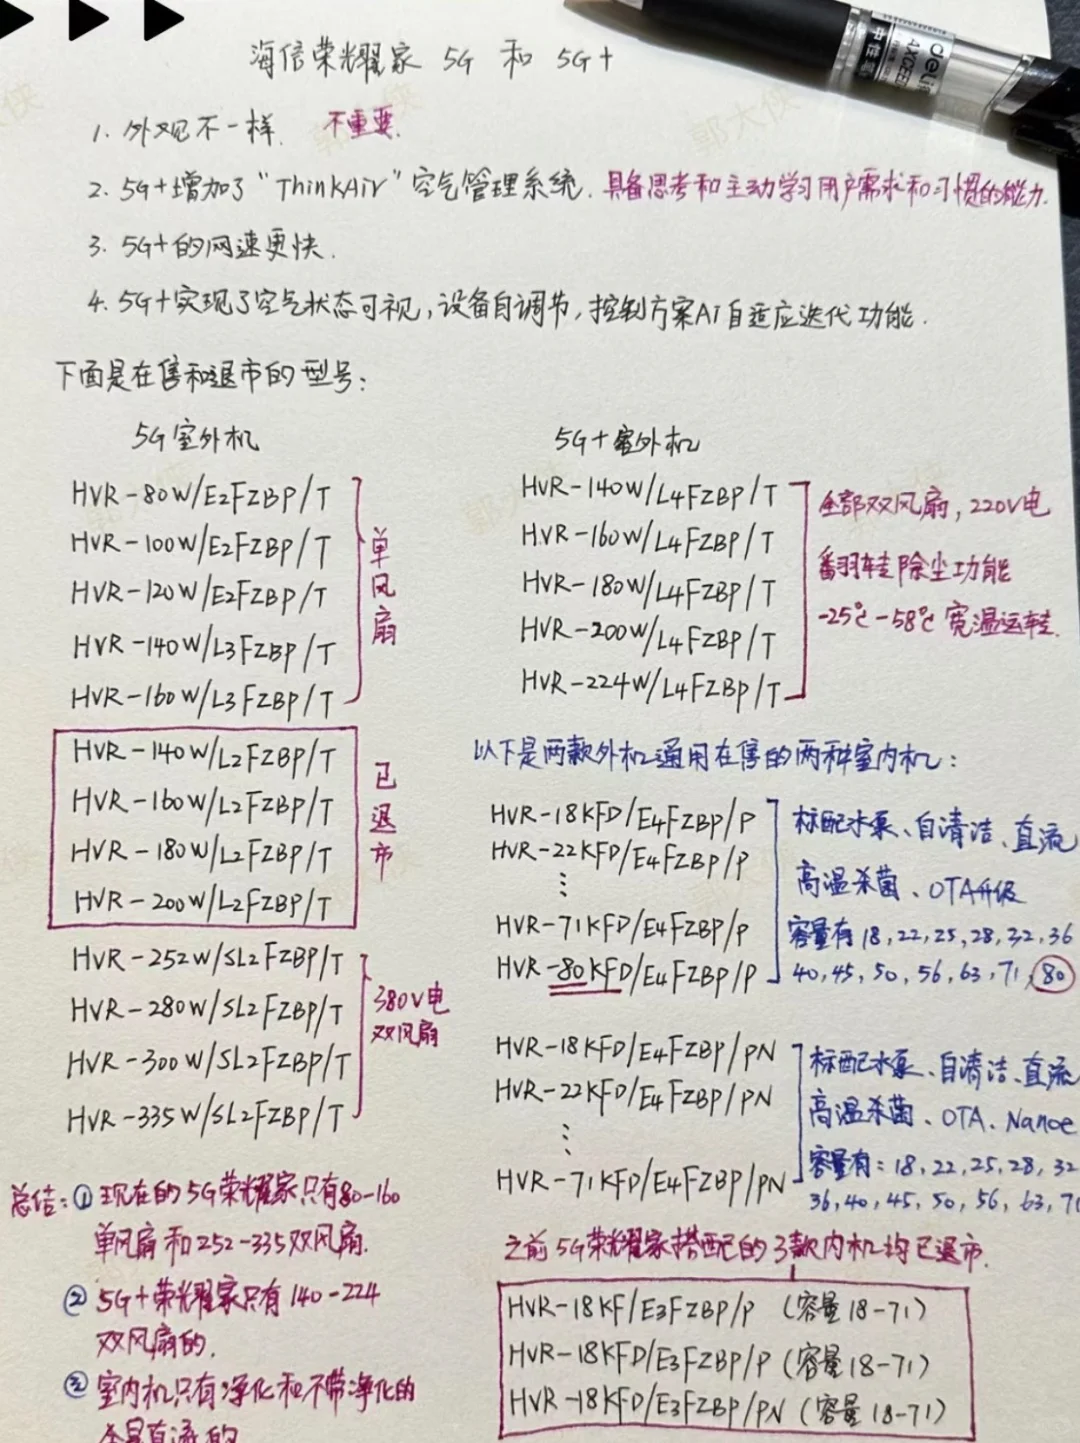 海信荣耀家 5G 和 5G+
1. 外观不一样. 不重要.
2. 5G+增加了“ThinkAir”空气管理系统. 具备思考和主动学习用户需求和习惯的能力.
3. 5G+的网速更快.
4. 5G+实现了空气状态可视,设备自调节,控制方案Ai自适应迭代功能.
下面是在售和退市的型号:
5G室外机
HVR-80W/E2FZBP/T
HVR-100W/E2FZBP/T
HVR-120W/E2FZBP/T
HVR-140W/L3FZBP/T
HVR-160W/L3FZBP/T
单风扇
HVR-140W/L2FZBP/T
HVR-160W/L2FZBP/T
HVR-180W/L2FZBP/T
HVR-200W/L2FZBP/T
已退市
HVR-252W/SL2FZBP/T
HVR-280W/SL2FZBP/T
HVR-300W/SL2FZBP/T
HVR-335W/SL2FZBP/T
380V电
双风扇
总结:①现在的5G荣耀家只有80-160
单风扇和252-335双风扇.
②5G+荣耀家只有140-224
双风扇的.
③室内机只有净化和不带净化的
全是直流的
5G+室外机
HVR-140W/L4FZBP/T
HVR-160W/L4FZBP/T
HVR-180W/L4FZBP/T
HVR-200W/L4FZBP/T
HVR-224W/L4FZBP/T
全部双风扇,220V电
翻转除尘功能
-25℃-58℃宽温运转.
以下是两款外机通用在售的两种室内机:
HVR-18KFD/E4FZBP/P
HVR-22KFD/E4FZBP/P
⋮
HVR-71KFD/E4FZBP/P
HVR-80KFD/E4FZBP/P
标配水泵、自清洁、直流
高温杀菌、OTA升级
容量有18,22,25,28,32,36
40,45,50,56,63,71,80
HVR-18KFD/E4FZBP/PN
HVR-22KFD/E4FZBP/PN
⋮
HVR-71KFD/E4FZBP/PN
标配水泵、自清洁、直流
高温杀菌、OTA、Nanoe
容量有:18,22,25,28,32
36,40,45,50,56,63,71
之前5G荣耀家搭配的3款内机均已退市.
HVR-18KF/E3FZBP/P (容量18-71)
HVR-18KFD/E3FZBP/P (容量18-71)
HVR-18KFD/E3FZBP/PN (容量18-71)
deli
中性笔
郭大侠